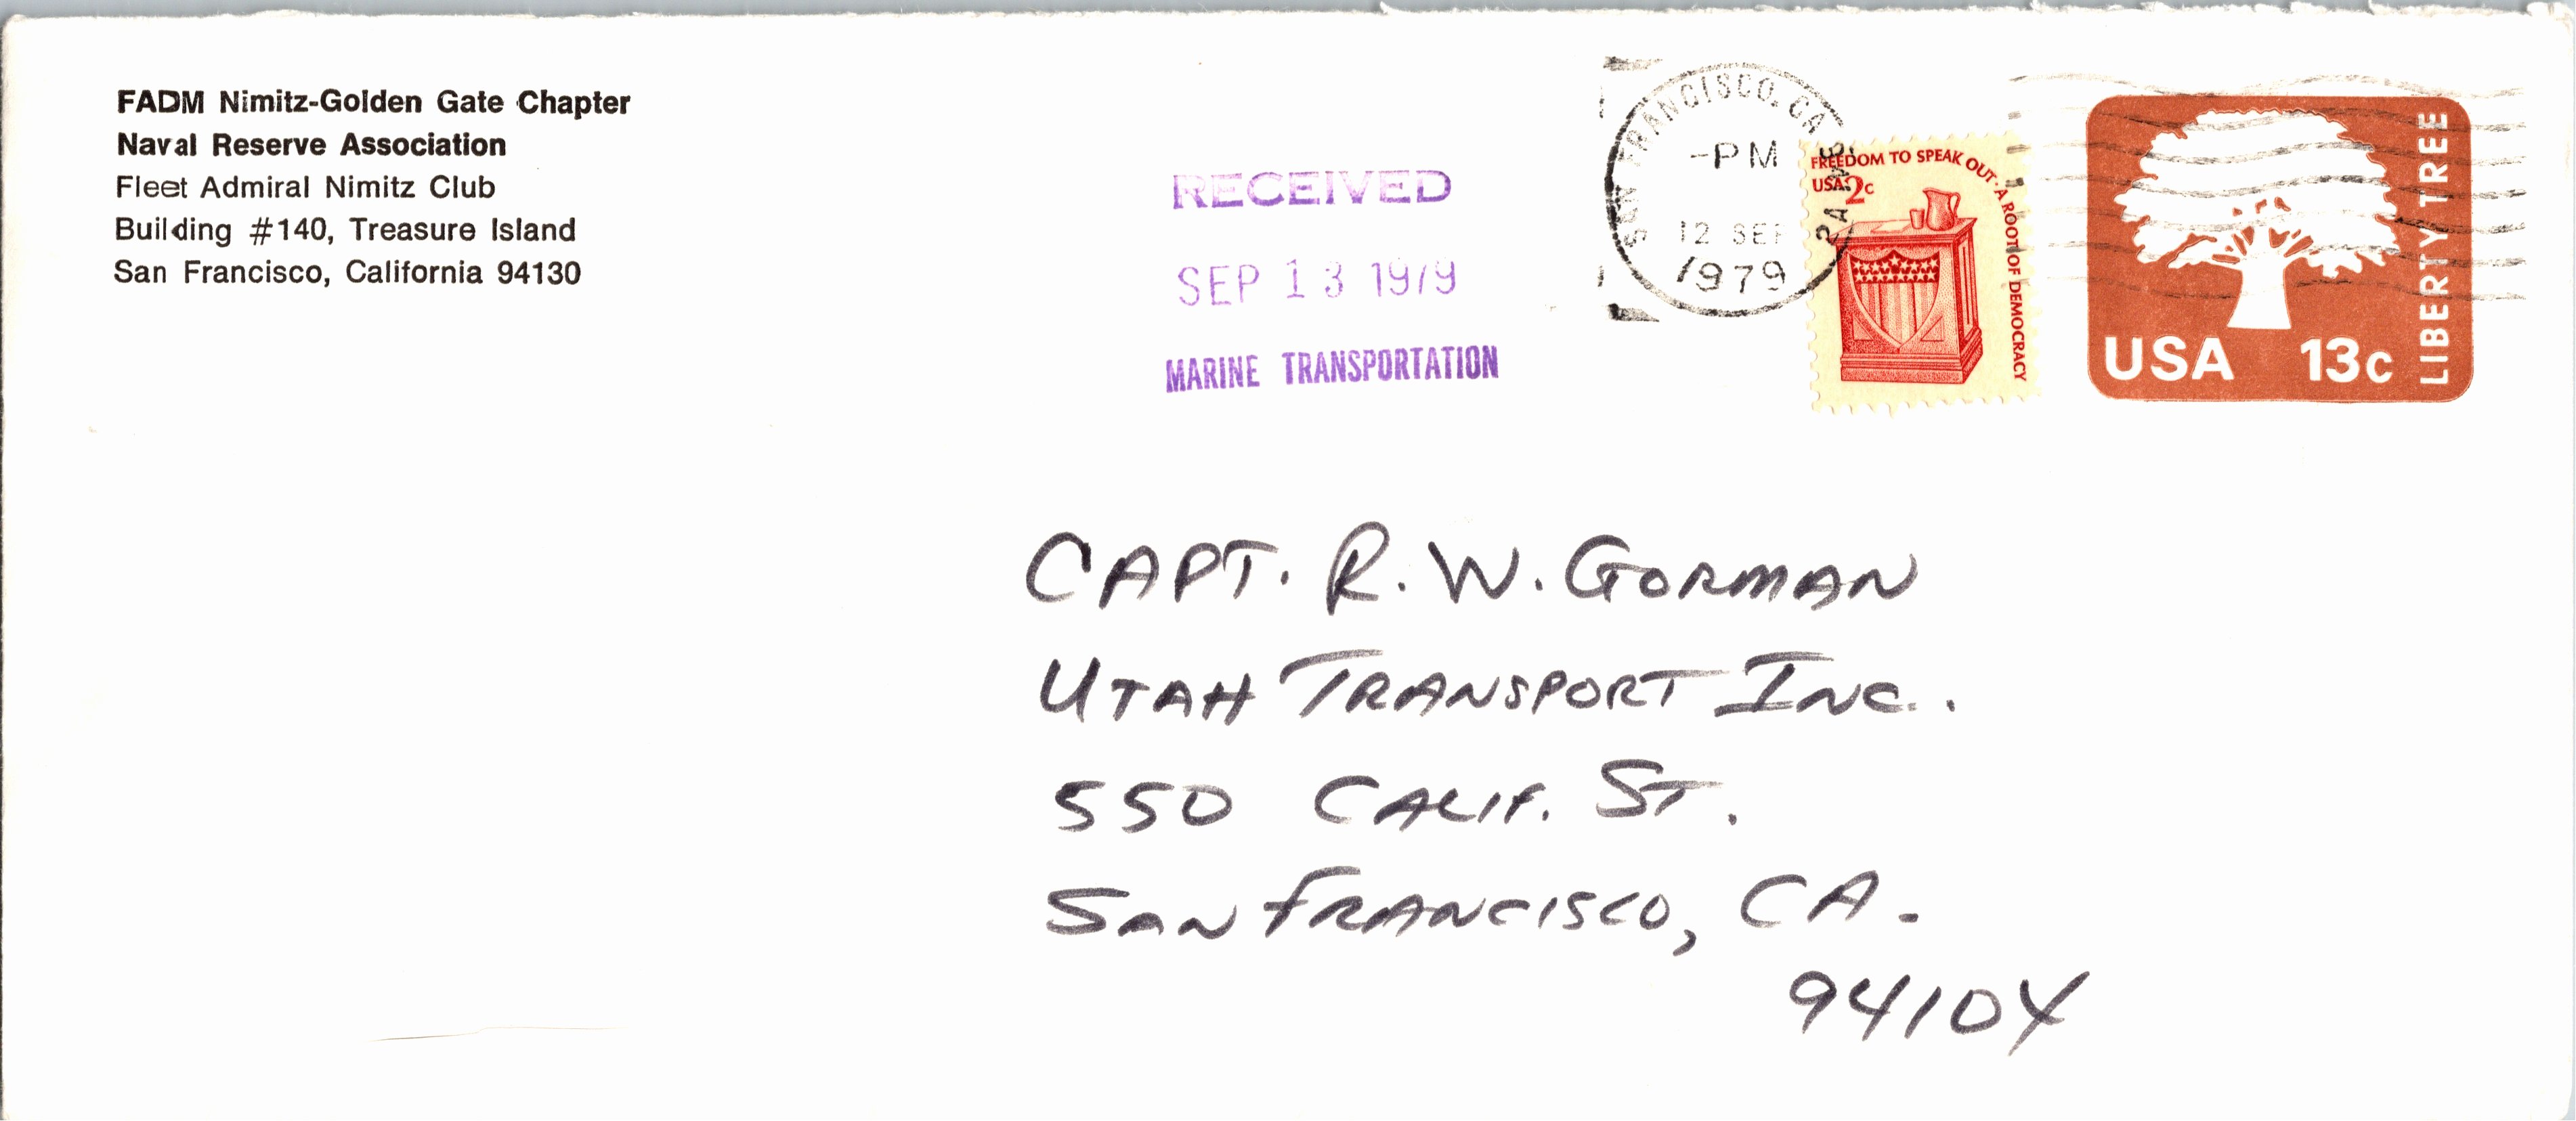 FADM Nimitz-Golden Gate Chapter
Naval Reserve Association
Fleet Admiral Nimitz Club
Building #140, Treasure Island
San Francisco, California 94130
RECEIVED
SEP 13 1979
MARINE TRANSPORTATION
SAN FRANCISCO. CA
-PM
12 SEP
1979
FREEDOM TO SPEAK OUT · A ROOT OF DEMOCRACY
USA 2c
LIBERTY TREE
USA 13c
CAPT. R. W. GORMAN
UTAH TRANSPORT INC.
550 CALIF. ST.
SAN FRANCISCO, CA.
94104